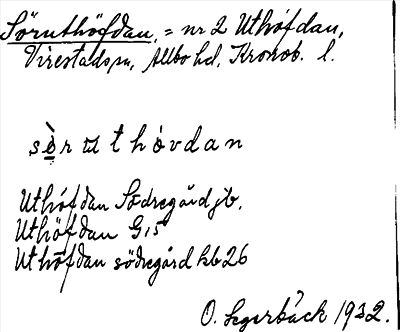 Söruthöfdan, = nr 2 Uthöfdan,
Virestads sn, Allbo hd, Kronob. l.
sö̀r ut hövdan
Uthöfdan Södregård jb.
Uthöfdan G15
Uthöfdan södregård kb 26
O. Segerbäck 1932.